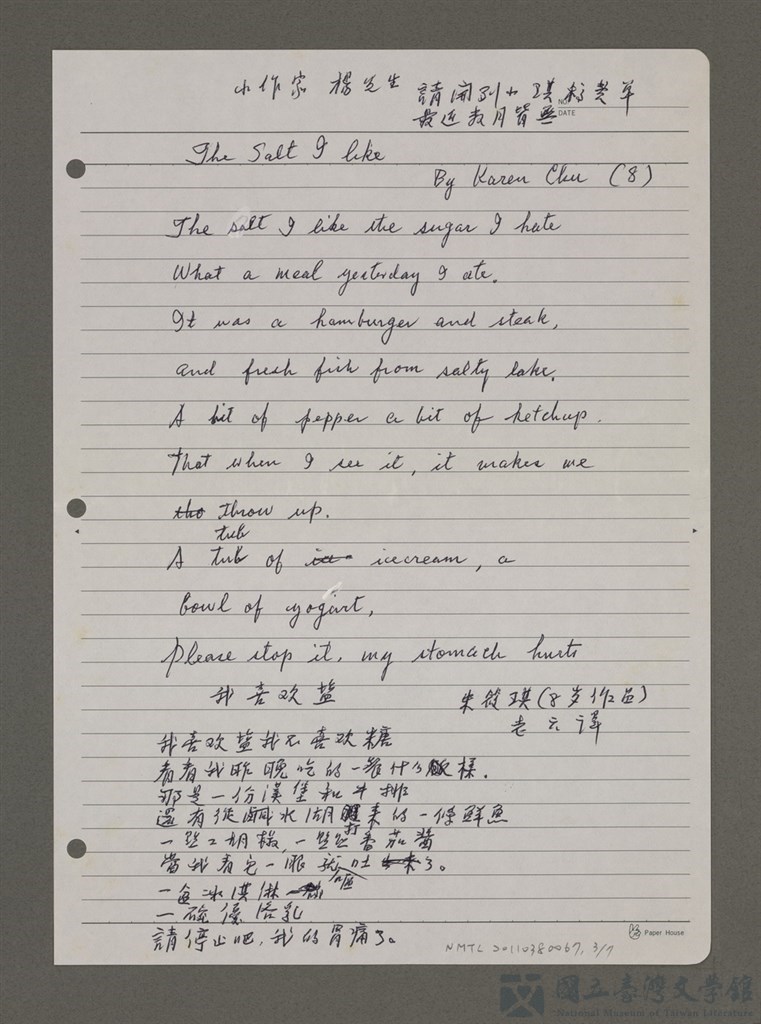 小作家 楊先生 請開列小琪稿費單
最近數月皆無
NO.
DATE
The Salt I like
By Karen Chu (8)
The salt I like the sugar I hate
What a meal yesterday I ate.
It was a hamburger and steak,
and fresh fish from salty lake.
A bit of pepper a bit of ketchup.
That when I see it, it makes me
tho throw up.
tub
A tub of ice icecream, a
bowl of yogurt,
Please stop it, my stomach hurts
我喜欢盐 朱筱琪(8岁作品)
老六譯
我喜欢盐我不喜欢糖
看看我昨晚吃的一餐什么樣.
那是一份漢堡和牛排
還有從鹹水湖打来的一條鮮魚
一些胡椒,一些番茄醬
當我看它一眼就嘔吐了。
一盒冰淇淋
一碗優格乳
請停止吧,我的胃痛了。
Paper House
NMTL 20110380067, 3/7
國立臺灣文學館
National Museum of Taiwan Literature